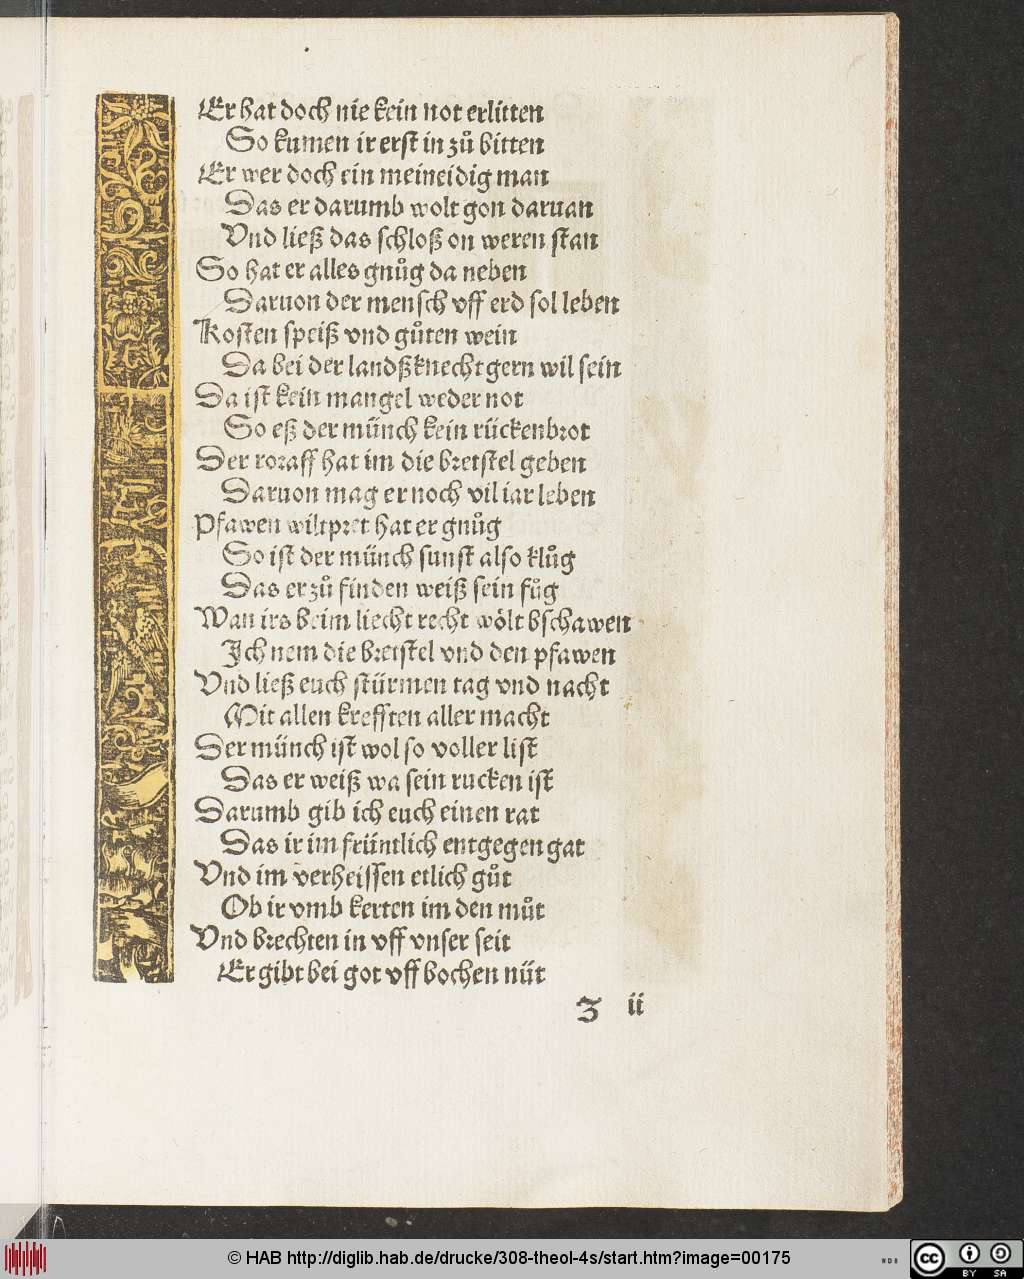 Er hat doch nie kein not erlitten
So kumen ir erst in zů bitten
Er wer doch ein meineidig man
Das er darumb wolt gon daruan
Vnd ließ das schloß on weren stan
So hat er alles gnůg da neben
Daruon der mensch vff erd sol leben
Kosten speiß vnd gůten wein
Da bei der landßknecht gern wil sein
Da ist kein mangel weder not
So eß der münch kein rückenbrot
Der roraff hat im die bretstel geben
Daruon mag er noch vil iar leben
Pfawen wiltpret hat er gnůg
So ist der münch sunst also klůg
Das er zů finden weiß sein fůg
Wan irs beim liecht recht wölt bschawen
Ich nem die bretstel vnd den pfawen
Vnd ließ euch stürmen tag vnd nacht
Mit allen krefften aller macht
Der münch ist wol so voller list
Das er weiß wa sein rucken ist
Darumb gib ich euch einen rat
Das ir im früntlich entgegen gat
Vnd im verheissen etlich gůt
Ob ir vmb kerten im den můt
Vnd brechten in vff vnser seit
Er gibt bei got vff bochen nüt
Z ii
© HAB http://diglib.hab.de/drucke/308-theol-4s/start.htm?image=00175
WDB
cc BY SA